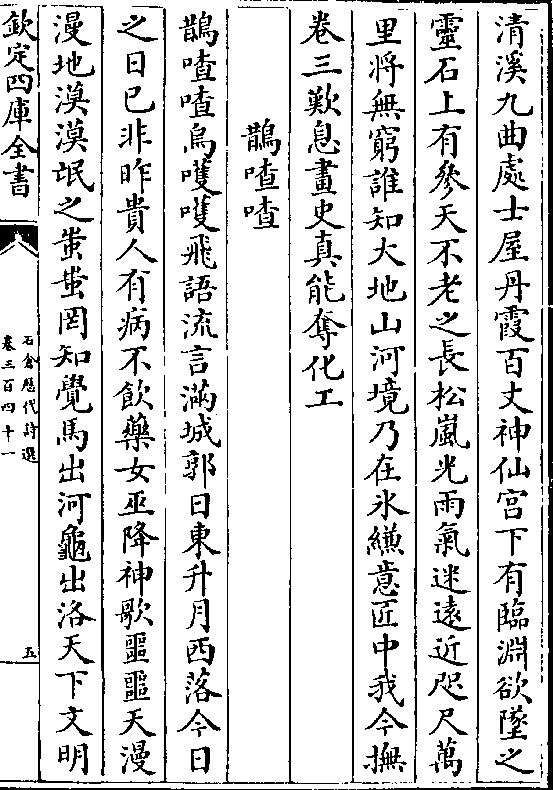 清溪九曲處士屋丹霞百丈神仙宮下有臨淵欲墜之
靈石上有參天不老之長松嵐光雨氣迷遠近咫尺萬
里將無窮誰知大地山河境乃在氷縑意匠中我今撫
卷三歎息畫史真能奪化工
鵲喳喳
鵲喳喳烏嚄嚄飛語流言滿城郭日東升月西落今日
之日已非昨貴人有病不飲藥女巫降神歌噩噩天漫
漫地漠漠氓之蚩蚩罔知覺馬出河龜出洛天下文明
欽定四庫全書
石倉歷代詩選
卷三百四十一
五